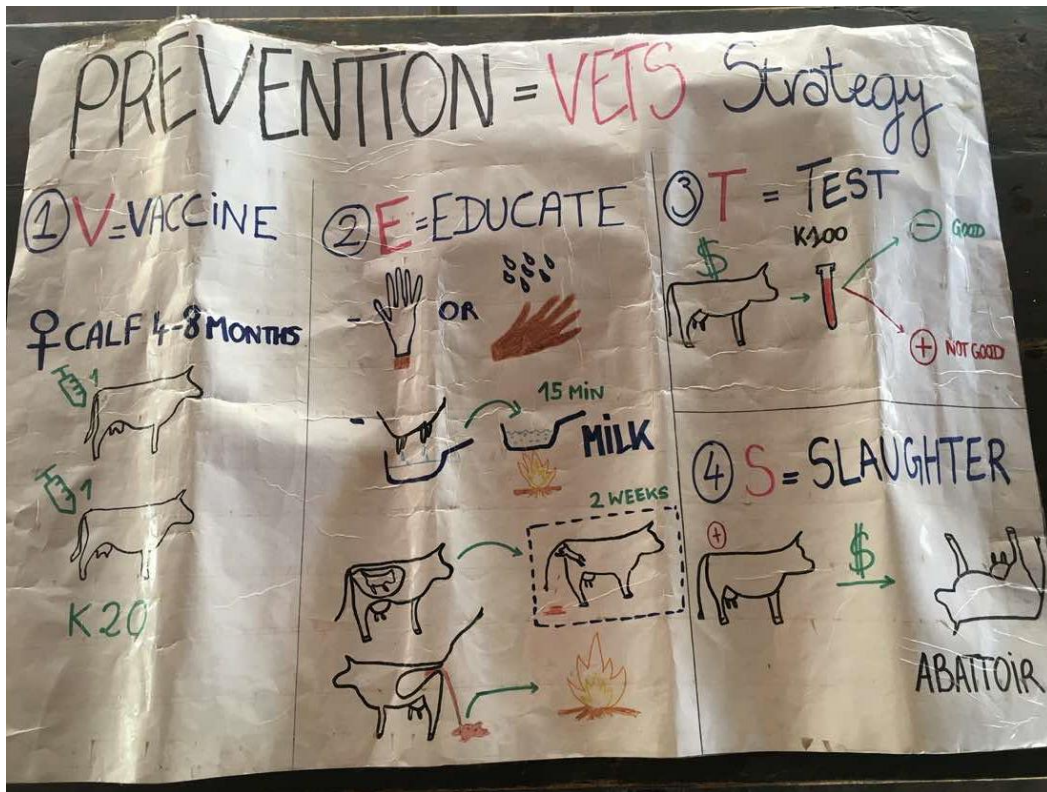 PREVENTION = VETS Strategy
① V = VACCINE
♀ CALF 4-8 MONTHS
1
1
K20
② E = EDUCATE
- OR
- 15 MIN
MILK
2 WEEKS
③ T = TEST
$
K100
⊖ GOOD
⊕ NOT GOOD
④ S = SLAUGHTER
⊕
$
ABATTOIR